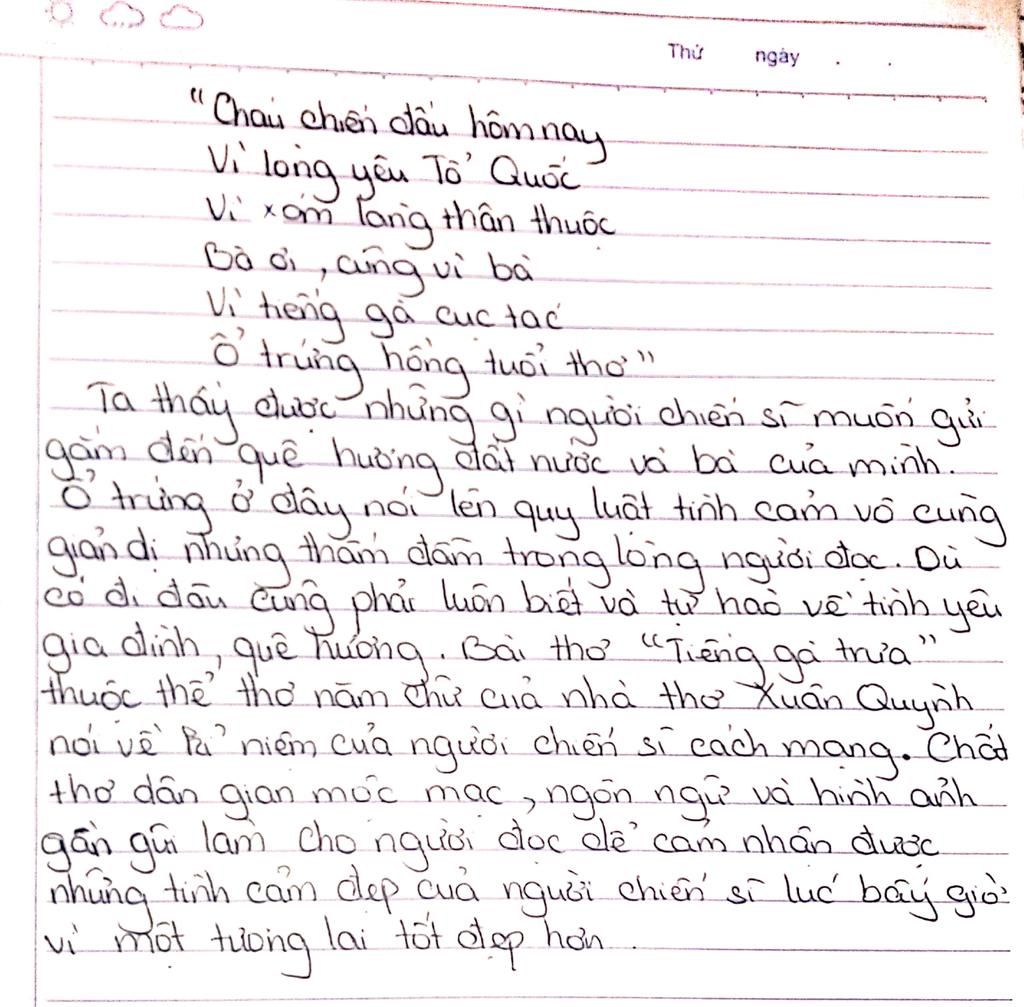 Thứ ngày . .
"Cháu chiến đấu hôm nay
Vì lòng yêu Tổ Quốc
Vì xóm làng thân thuộc
Bà ơi, cũng vì bà
Vì tiếng gà cục tác
Ổ trứng hồng tuổi thơ"
Ta thấy được những gì người chiến sĩ muốn gửi
gắm đến quê hương đất nước và bà của mình.
Ổ trứng ở đây nói lên quy luật tình cảm vô cùng
giản dị nhưng thấm đẫm trong lòng người đọc. Dù
có đi đâu cũng phải luôn biết và tự hào về tình yêu
gia đình, quê hương. Bài thơ "Tiếng gà trưa"
thuộc thể thơ năm chữ của nhà thơ Xuân Quỳnh
nói về kỉ niệm của người chiến sĩ cách mạng. Chất
thơ dân gian mộc mạc, ngôn ngữ và hình ảnh
gần gũi làm cho người đọc dễ cảm nhận được
những tình cảm đẹp của người chiến sĩ lúc bấy giờ
vì một tương lai tốt đẹp hơn.